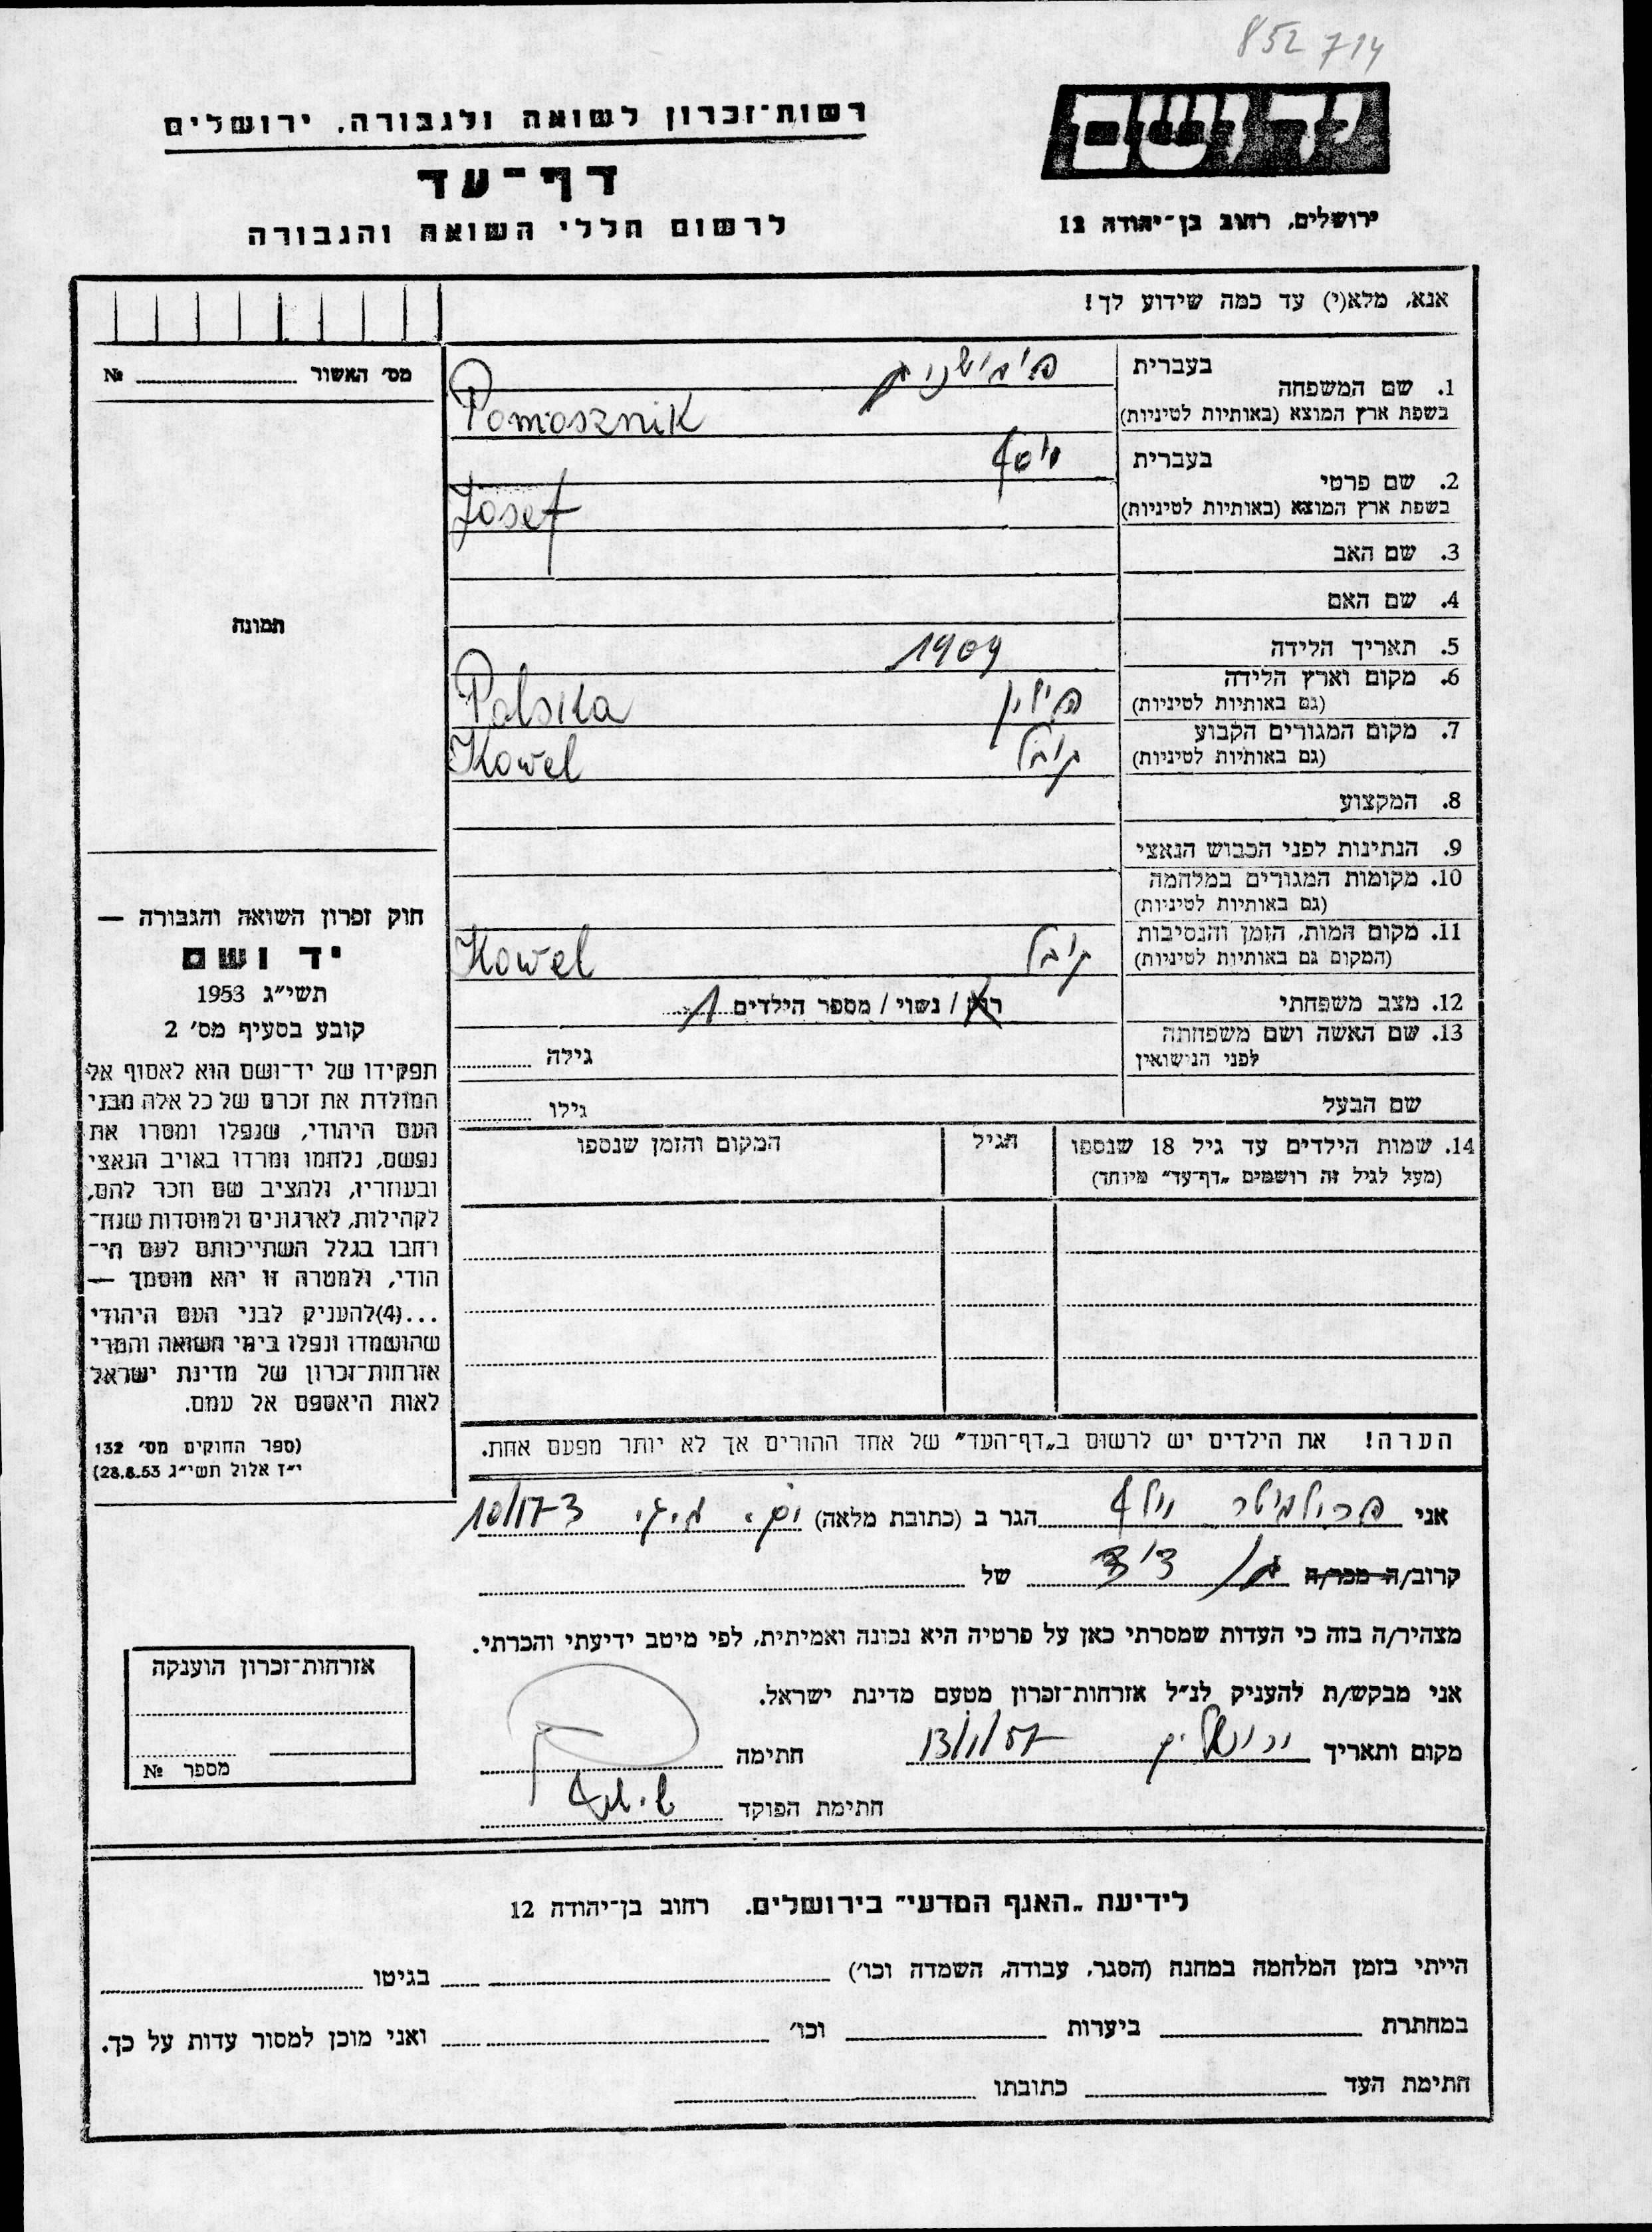 852 714
יד ושם
ירושלים, רחוב בן־יהודה 12
רשות־זכרון לשואה ולגבורה, ירושלים
דף־עד
לרשום חללי השואה והגבורה
אנא, מלא(י) עד כמה שידוע לך!
מס׳ האשור № 
תמונה
חוק זכרון השואה והגבורה —
יד ושם
תשי״ג 1953
קובע בסעיף מס׳ 2
תפקידו של יד־ושם הוא לאסוף אל
המולדת את זכרם של כל אלה מבני
העם היהודי, שנפלו ומסרו את
נפשם, נלחמו ומרדו באויב הנאצי
ובעוזריו, ולהציב שם וזכר להם,
לקהילות, לארגונים ולמוסדות שנח־
רחבו בגלל השתייכותם לעם הי־
הודי, ולמטרה זו יהא מוסמך —
...(4)להעניק לבני העם היהודי
שהושמדו ונפלו בימי השואה והמרי
אזרחות־זכרון של מדינת ישראל
לאות היאספם אל עמם.
(ספר החוקים מס׳ 132
י״ז אלול תשי״ג 28.8.53)
1. שם המשפחה בעברית פומושניק
בשפת ארץ המוצא (באותיות לטיניות) Pomosznik
2. שם פרטי בעברית יוסף
בשפת ארץ המוצא (באותיות לטיניות) Josef
3. שם האב
4. שם האם
5. תאריך הלידה 1909
6. מקום וארץ הלידה (גם באותיות לטיניות) פולין Polska
7. מקום המגורים הקבוע (גם באותיות לטיניות) קובל Kowel
8. המקצוע
9. הנתינות לפני הכבוש הנאצי
10. מקומות המגורים במלחמה
(גם באותיות לטיניות)
11. מקום המות, הזמן והנסיבות
(המקום גם באותיות לטיניות) קובל Kowel
12. מצב משפחתי רווק / נשוי / מספר הילדים 1
13. שם האשה ושם משפחתה
לפני הנישואין גילה
שם הבעל גילו
14. שמות הילדים עד גיל 18 שנספו
(מעל לגיל זה רושמים „דף־עד״ מיוחד)
הגיל
המקום והזמן שנספו
הערה! את הילדים יש לרשום ב„דף־העד״ של אחד ההורים אך לא יותר מפעם אחת.
אני הגר ב (כתובת מלאה) 10/173
קרוב/ה מכר/ה בן דוד של
מצהיר/ה בזה כי העדות שמסרתי כאן על פרטיה היא נכונה ואמיתית, לפי מיטב ידיעתי והכרתי.
אני מבקש/ת להעניק לנ״ל אזרחות־זכרון מטעם מדינת ישראל.
מקום ותאריך ירושלים 13/1/57 חתימה
חתימת הפוקד
אזרחות־זכרון הוענקה
מספר №
לידיעת „האגף המדעי״ בירושלים. רחוב בן־יהודה 12
הייתי בזמן המלחמה במחנה (הסגר, עבודה, השמדה וכו׳) בגיטו
במחתרת ביערות וכו׳ ואני מוכן למסור עדות על כך.
חתימת העד כתובתו